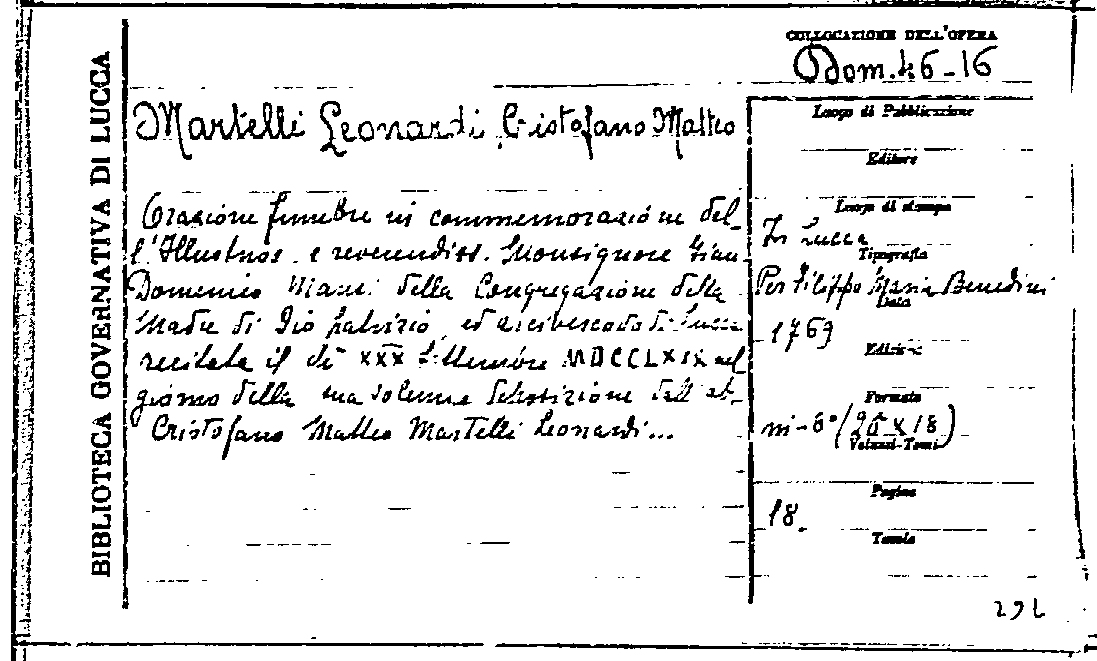 BIBLIOTECA GOVERNATIVA DI LUCCA
COLLOCAZIONE DELL'OPERA
Dom. 46-16
Martelli Leonardi, Cristofano Matteo
Orazione funebre in commemorazione del-
l'Illustriss. e reverendiss. Monsignore Gian
Domenico Mansi della Congregazione della
Madre di Dio patrizio, ed arcivescovo di Lucca
recitata il dì XXX Settembre MDCCLXIX nel
giorno della sua solenne deposizione dall'ab.
Cristofano Matteo Martelli Leonardi...
Luogo di Pubblicazione
Editore
Luogo di stampa
In Lucca
Tipografia
Per Filippo Maria Benedini
Data
1769
Edizione
Formato
in-8° (26 x 18)
Volumi-Tomi
Pagine
18.
Tavole
292